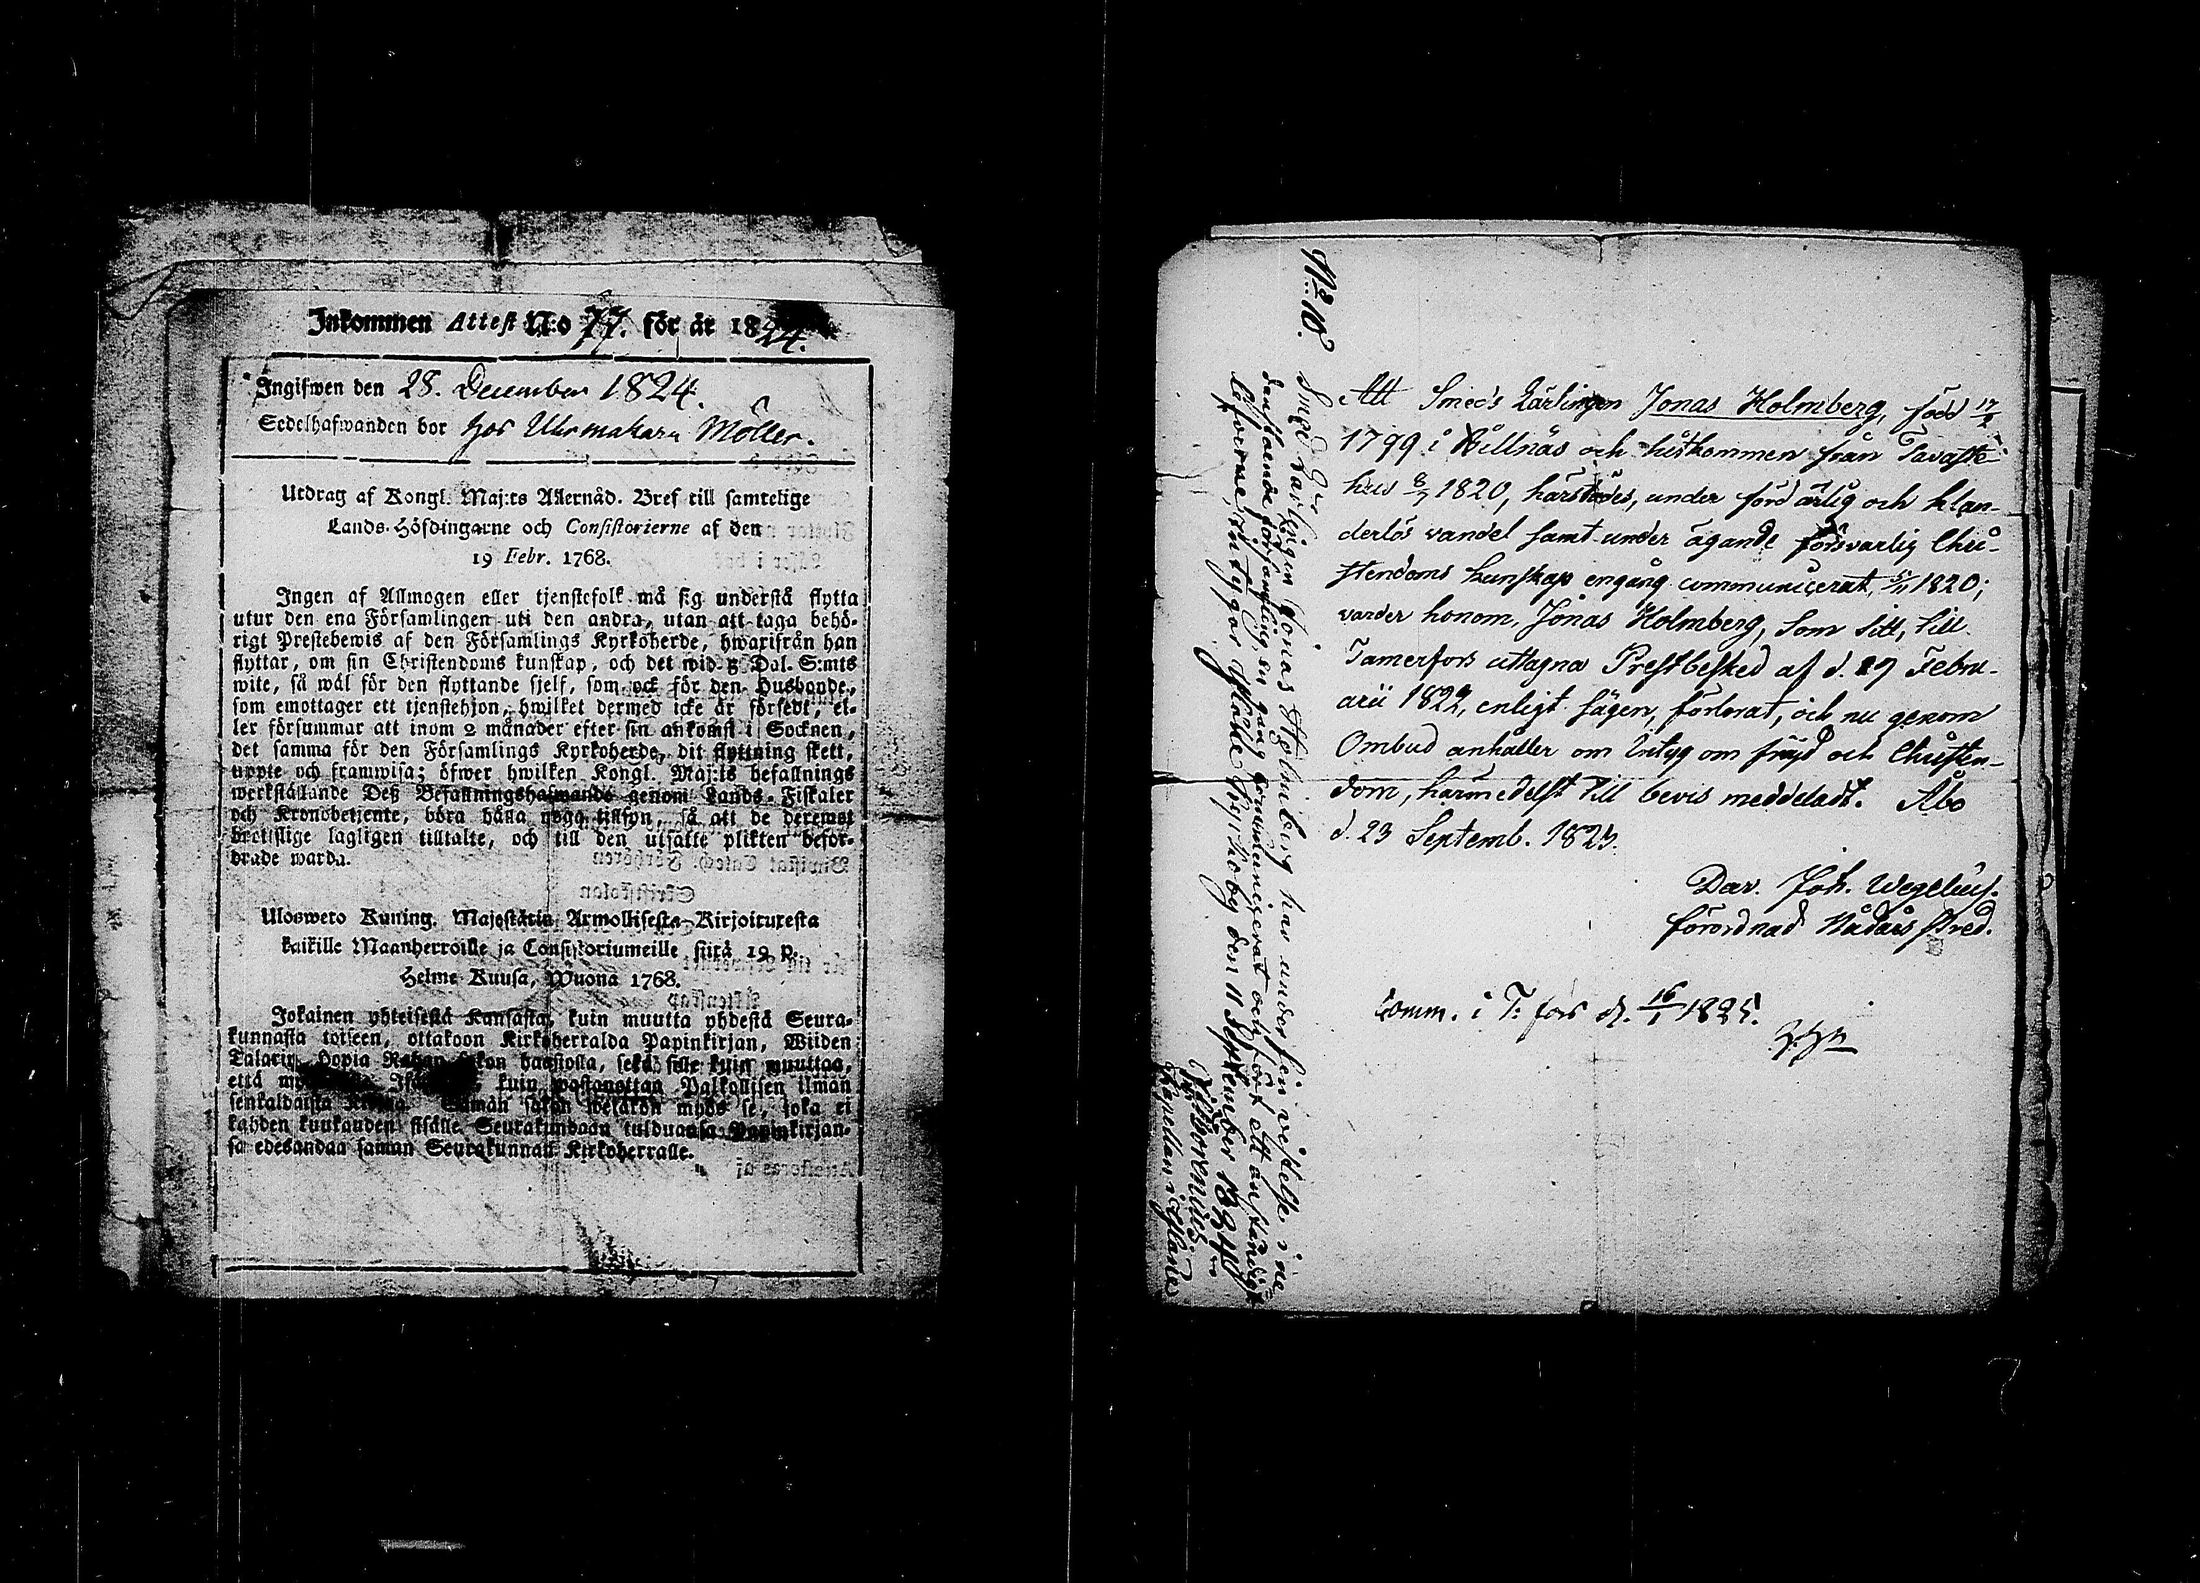 Inkommen Attest N:o 77. för år 1824.
Ingifwen den 28. December 1824.
Sedelhafwanden bor hos Uhrmakare Möller.
Utdrag af Kongl. Maj:ts Allernåd. Bref till samtelige
Lands-Höfdingarne och Consistorierne af den
19 Febr. 1768.
Ingen af Allmogen eller tjenstefolk må sig understå flytta
utur den ena Församlingen uti den andra, utan att taga behö-
rigt Prestebewis af den Församlings Kyrkoherde, hwarifrån han
flyttar, om sin Christendoms kunskap, och det wid 5 Dal. S:mts
wite, så wäl för den flyttande sjelf, som ock för den Husbonde,
som emottager ett tjenstehjon, hwilket dermed icke är försedt, el-
ler försummar att inom 2 månader efter sin ankomst i Socknen,
det samma för den Församlings Kyrkoherde, dit flyttning skett,
uppte och framwisa; öfwer hwilken Kongl. Maj:ts befallnings
werkställande Deß Befallningshafwande genom Lands-Fiskaler
och Kronobetjente, böra hålla noga tillsyn, så att de deremot
brottslige lagligen tilltalte, och till den utsatte plikten befor-
drade warda.
Ulosweto Kuning. Majestätin Armollisesta Kirjoituxesta
kaikille Maanherroille ja Consistoriumeille siitä 19 p.
Helme Kuusa, Wuonna 1768.
Jokainen yhteisestä Kansasta, kuin muutta yhdestä Seura-
kunnasta toiseen, ottakoon Kirkoherralda Papinkirjan, Wiiden
Talarin Hopia Rahan sakon haastolla, sekä sille kuin muuttaa,
että kuin wastanottaa Palkollisen ilman
senkaldaista Saman sakon wetäkön myös se, joka ei
kahden kuukauden sisälle Seurakundaan tulduansa Papinkirjan-
sa edesandaa saman Seurakunnan Kirkoherralle.
No 10.
Att Smeds Lärlingen Jonas Holmberg, född 17/
1799 i Billnäs och hitkommen från Tavaste-
hus 8/7 1820, härstädes, under förd ärlig och klan-
derlös vandel samt under ägande försvarlig Chri-
stendoms kunskap engång communicerat, 5/11 1820;
varder honom, Jonas Holmberg, Som Sitt, till
Tamerfors uttagna Prestbesked af d. 17 Febru-
arii 1822, enligt sägen, förlorat, och nu genom
Ombud anhåller om Intyg om frejd och Christen-
dom, härmedelst till bevis meddeladt. Åbo
d. 23 Septemb. 1823.
Dav. Joh. Wegelius.
förordnad Nådårs Pred.
Comm. i T:fors d. 16/1 1825.
Smeds Lärlingen Jonas Holmberg har under sin vistelse i ne-
danstående församling, en gång communicerat och fört ett anständigt
lefverne, Intygar Hållne Kyrkoby den 11 September 1824
Kapellan i